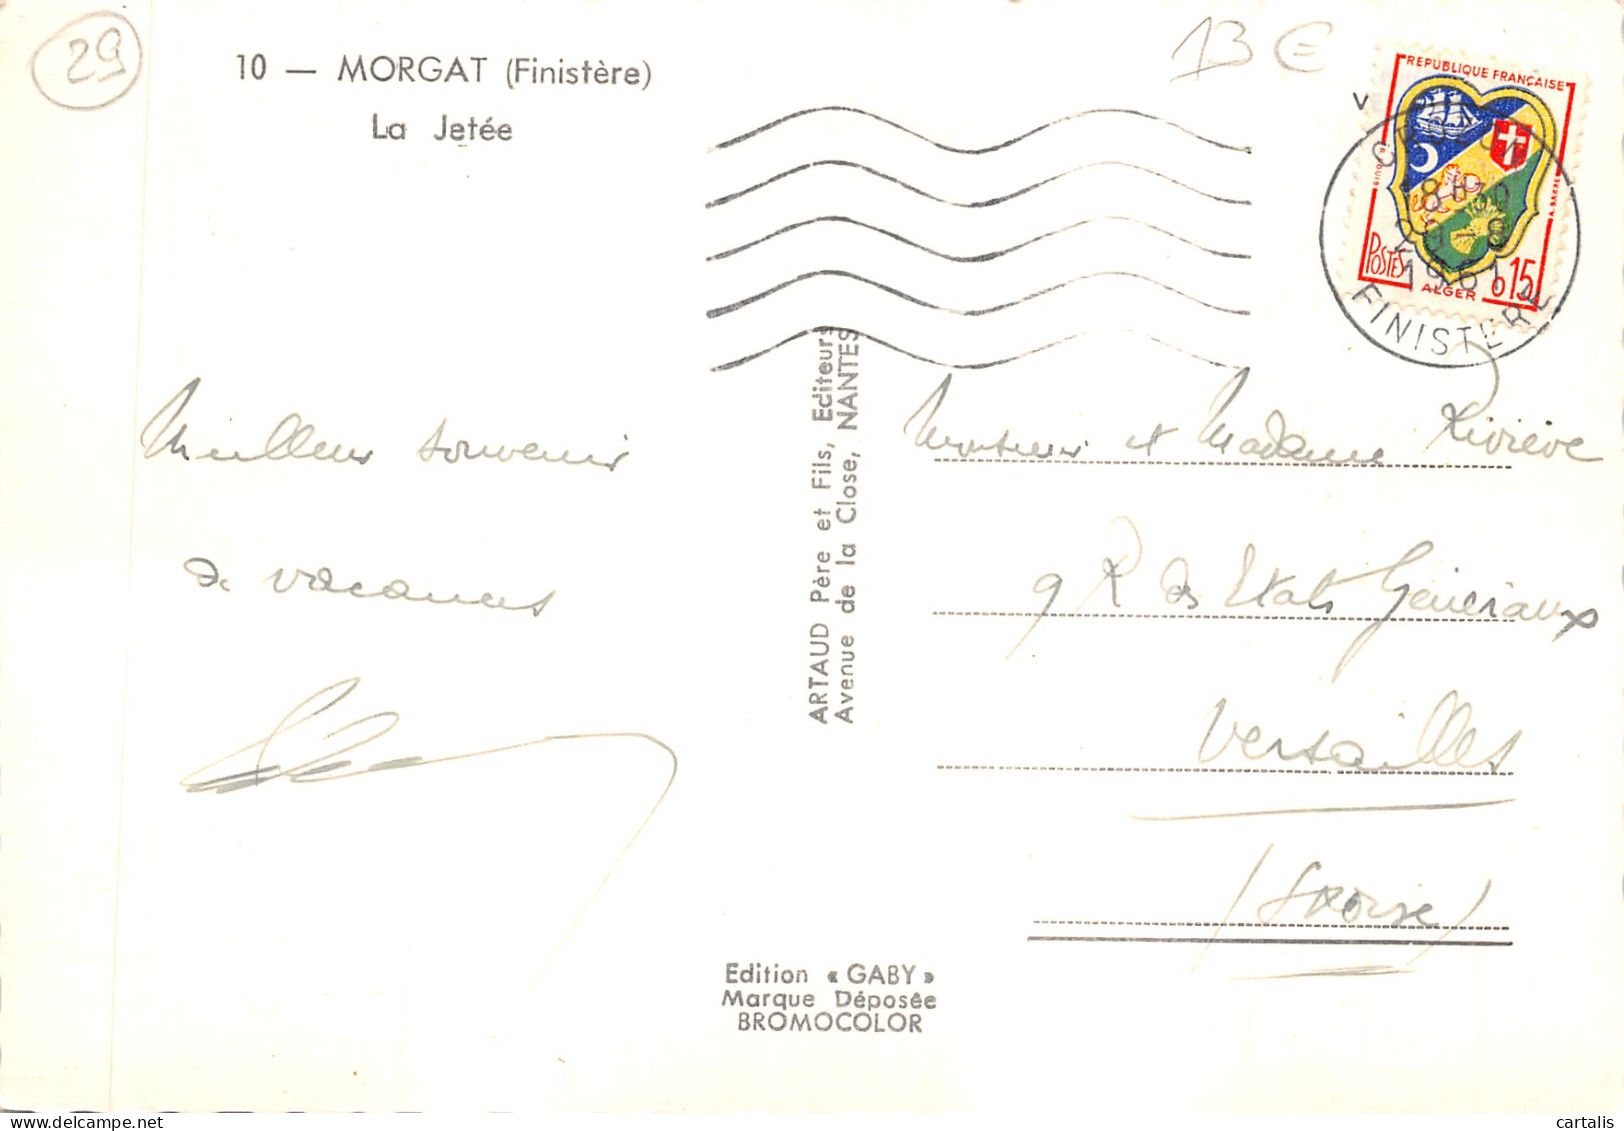 29
13 €
10 — MORGAT (Finistère)
La Jetée
REPUBLIQUE FRANÇAISE
POSTES
ALGER
0,15
CROZON
18H30
29-8
1961
FINISTERE
Meilleur souvenir
de vacances
ARTAUD Père et Fils, Editeurs
Avenue de la Close, NANTES
Monsieur et Madame Rivière
9 R des Etats Généraux
Versailles
(S&OISE)
Edition « GABY »
Marque Déposée
BROMOCOLOR
cartalis